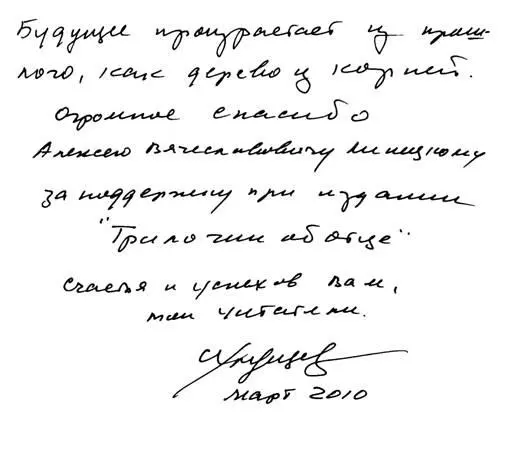 Будущее произрастает из прош-
лого, как дерево из корней.
Огромное спасибо
Алексею Вячеславовичу
за поддержку при издании
"Трилогии об отце"
Счастья и успехов Вам,
мои читатели.
СХрущев
март 2010